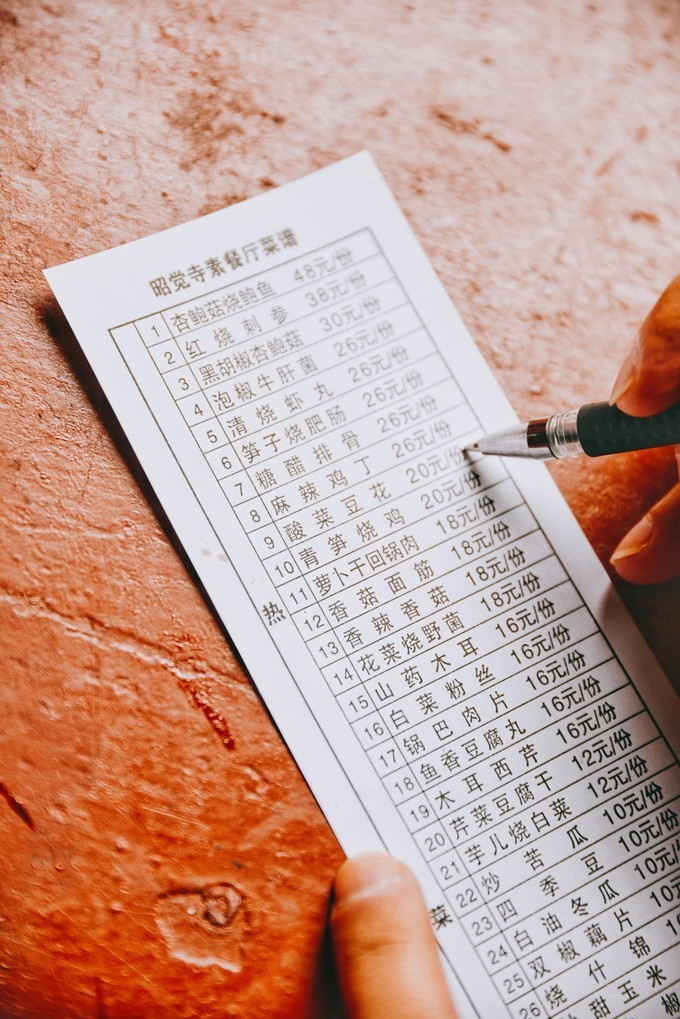 昭觉寺素餐厅菜谱
1 杏鲍菇烧鲍鱼 48元/份
2 红烧刺参 38元/份
3 黑胡椒杏鲍菇 30元/份
4 泡椒牛肝菌 26元/份
5 清烧虾丸 26元/份
6 笋子烧肥肠 26元/份
7 糖醋排骨 26元/份
8 麻辣鸡丁 26元/份
9 酸菜豆花 20元/份
10 青笋烧鸡 20元/份
11 萝卜干回锅肉 18元/份
热
12 香菇面筋 18元/份
13 香辣香菇 18元/份
14 花菜烧野菌 18元/份
15 山药木耳 16元/份
16 白菜粉丝 16元/份
17 锅巴肉片 16元/份
18 鱼香豆腐丸 16元/份
19 木耳西芹 16元/份
20 芹菜豆腐干 12元/份
21 芋儿烧白菜 12元/份
菜
22 炒苦瓜 10元/份
23 四季豆 10元/份
24 白油冬瓜 10元/
25 双椒藕片 10
26 烧什锦
甜玉米
椒